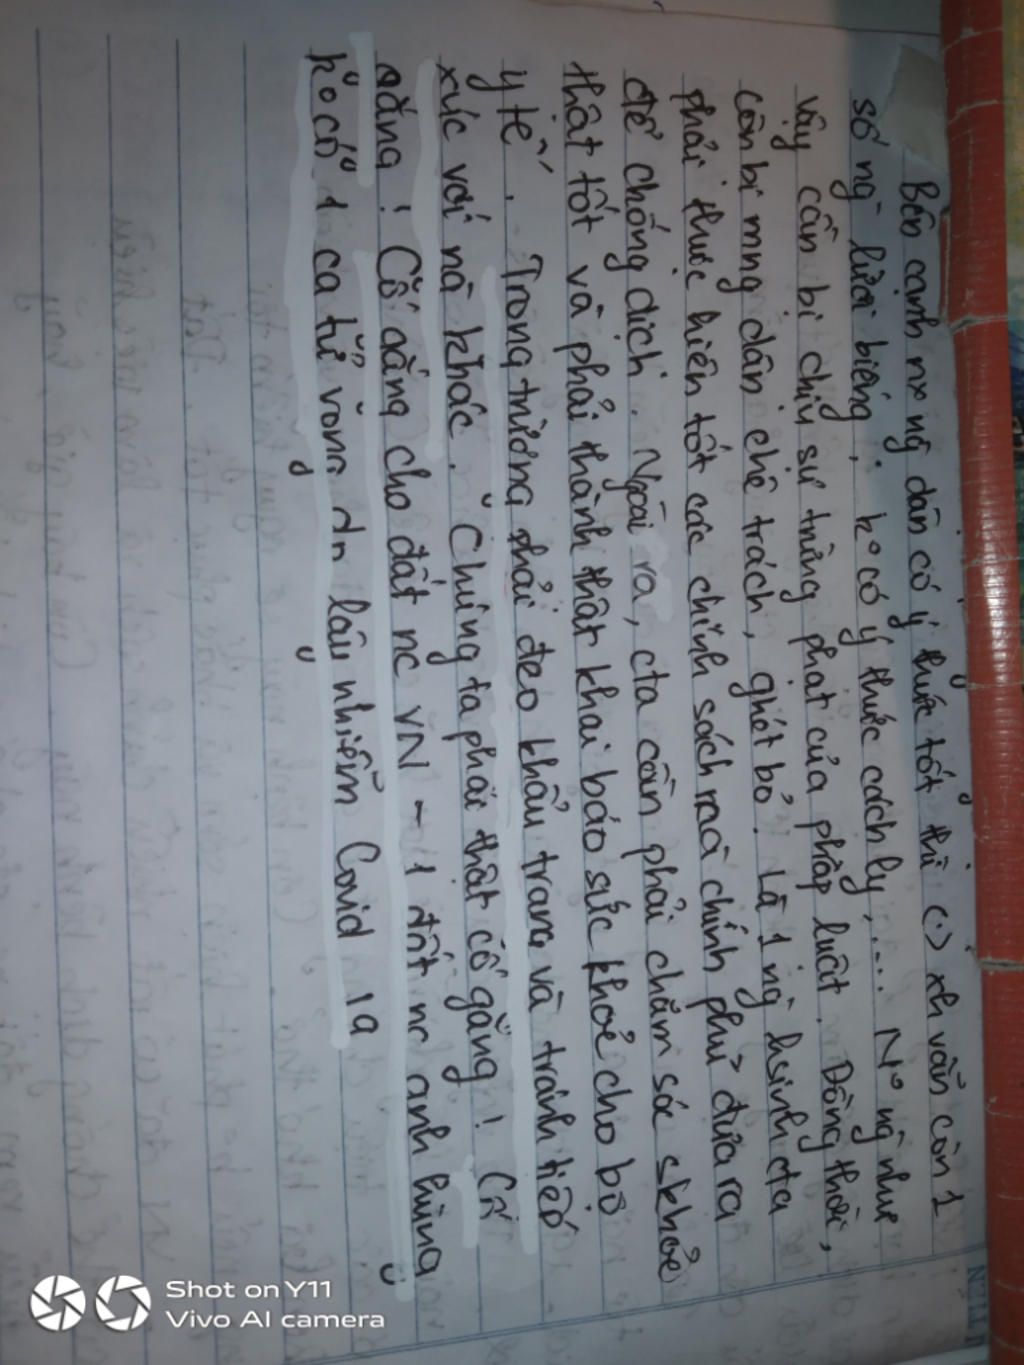 Bên cạnh nx ng dân có ý thức tốt thì (.) xh vẫn còn 1
số ng lười biếng, ko có ý thức cách ly,.... No ng như
vậy cần bị chịu sự trừng phạt của pháp luật. Đồng thời,
còn bị mng dân chê trách, ghét bỏ. Là 1 ng hsinh cta
phải thực hiện tốt các chính sách mà chính phủ đưa ra
để chống dịch. Ngoài ra, cta cần phải chăm sóc skhoẻ
thật tốt và phải thành thật khai báo sức khoẻ cho bộ
y tế. Trong trường phải đeo khẩu trang và tránh tiếp
xúc với nà khác. Chúng ta phải thật cố gắng! Cố
gắng! Cố gắng cho đất nc VN - 1 đất nc anh hùng
ko có 1 ca tử vong do lây nhiễm Covid 19
Shot on Y11
Vivo AI camera